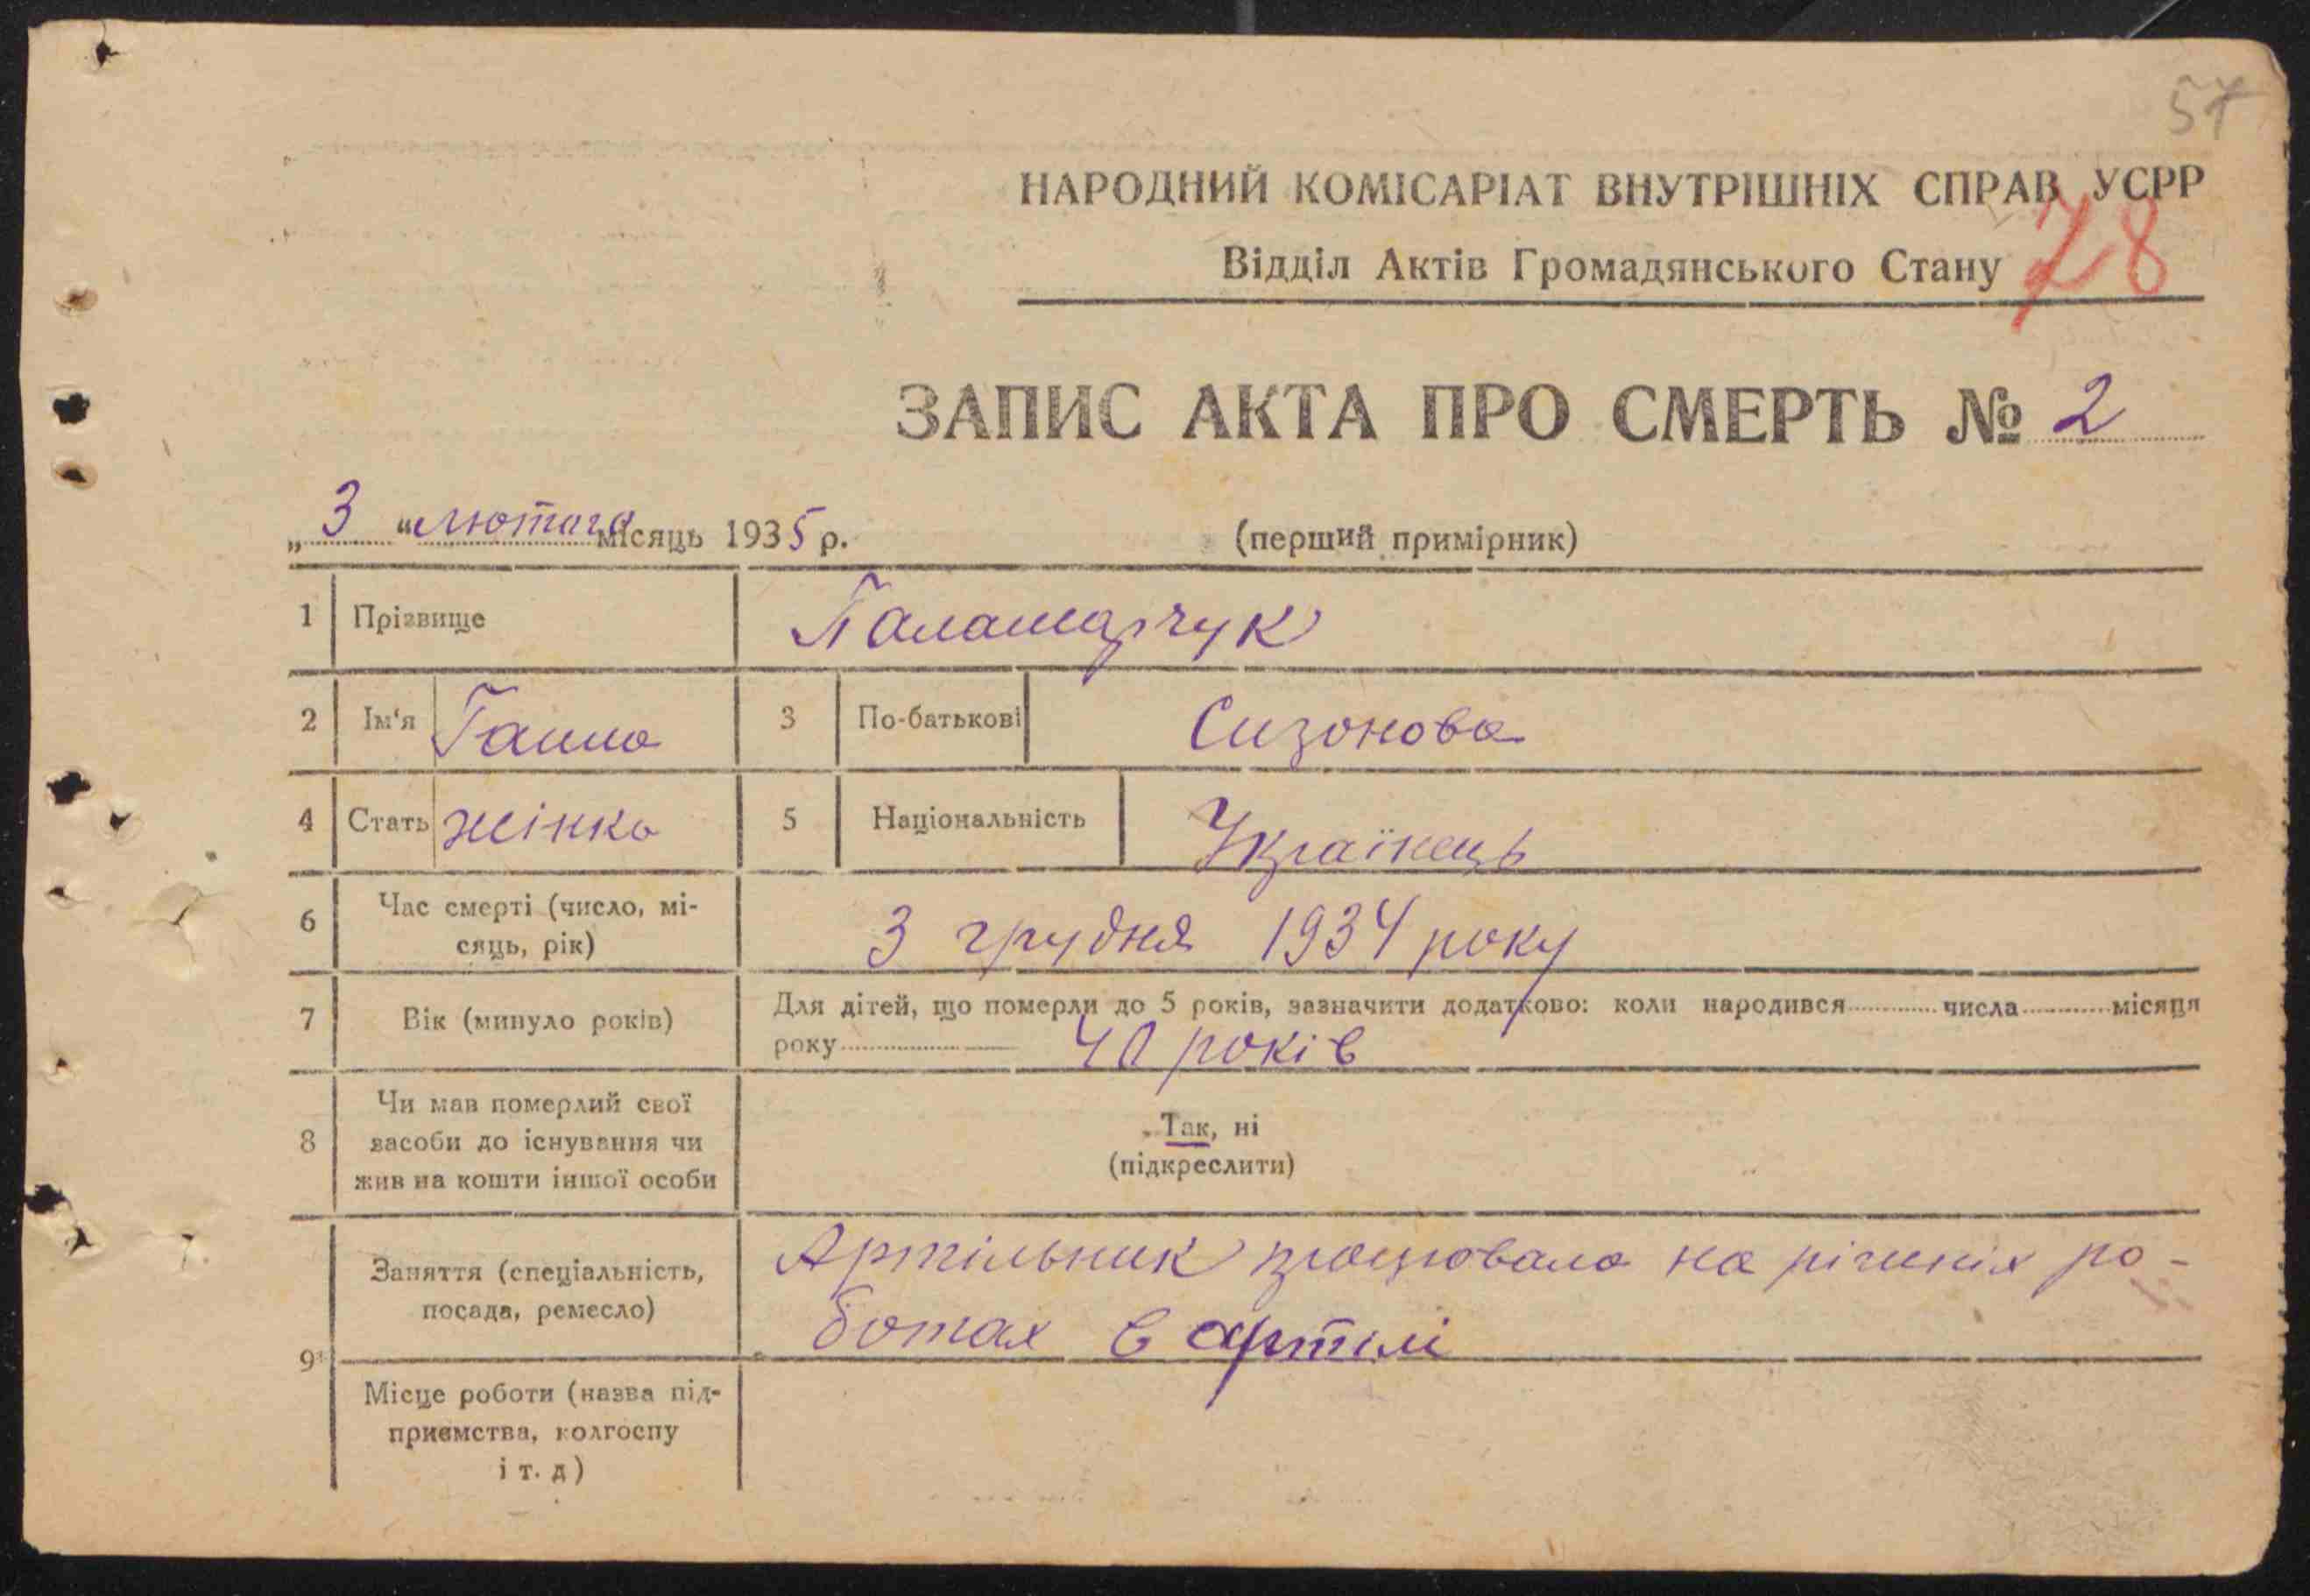 57
НАРОДНИЙ КОМІСАРІАТ ВНУТРІШНІХ СПРАВ УСРР
78
Відділ Актів Громадянського Стану
ЗАПИС АКТА ПРО СМЕРТЬ № 2
„ 3 “ лютого місяць 1935 р. (перший примірник)
1 Прізвище Паламарчук
2 Ім'я Ганна 3 По-батькові Сизонова
4 Стать жінка 5 Національність Українець
6 Час смерті (число, мі-
сяць, рік) 3 грудня 1934 року
7 Вік (минуло років) Для дітей, що померли до 5 років, зазначити додатково: коли народився числа місяця
року 40 років
8 Чи мав померлий свої
засоби до існування чи
жив на кошти іншої особи
Так, ні
(підкреслити)
9 Заняття (спеціальність,
посада, ремесло)
Артільник працювала на різних ро-
ботах в артілі
Місце роботи (назва під-
приємства, колгоспу
і т. д)